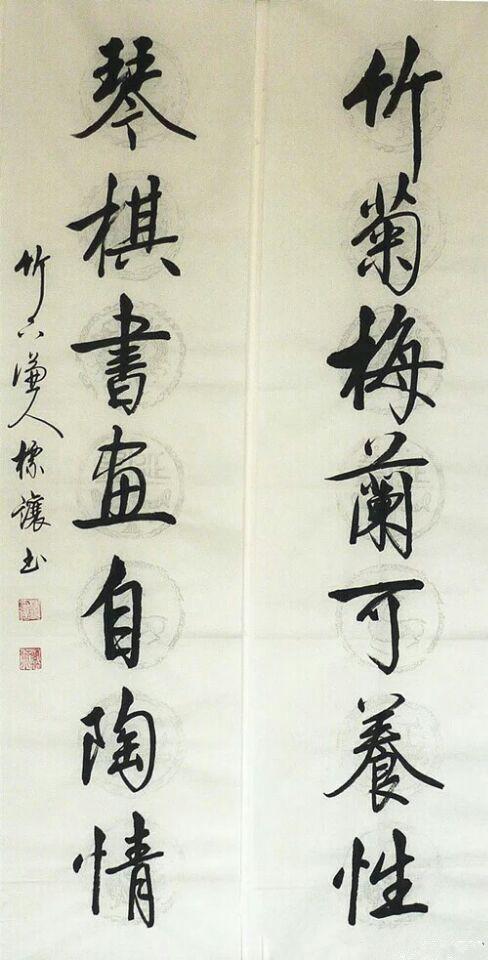 竹菊梅蘭可養性
琴棋書畫自陶情
竹下謙人標讓书